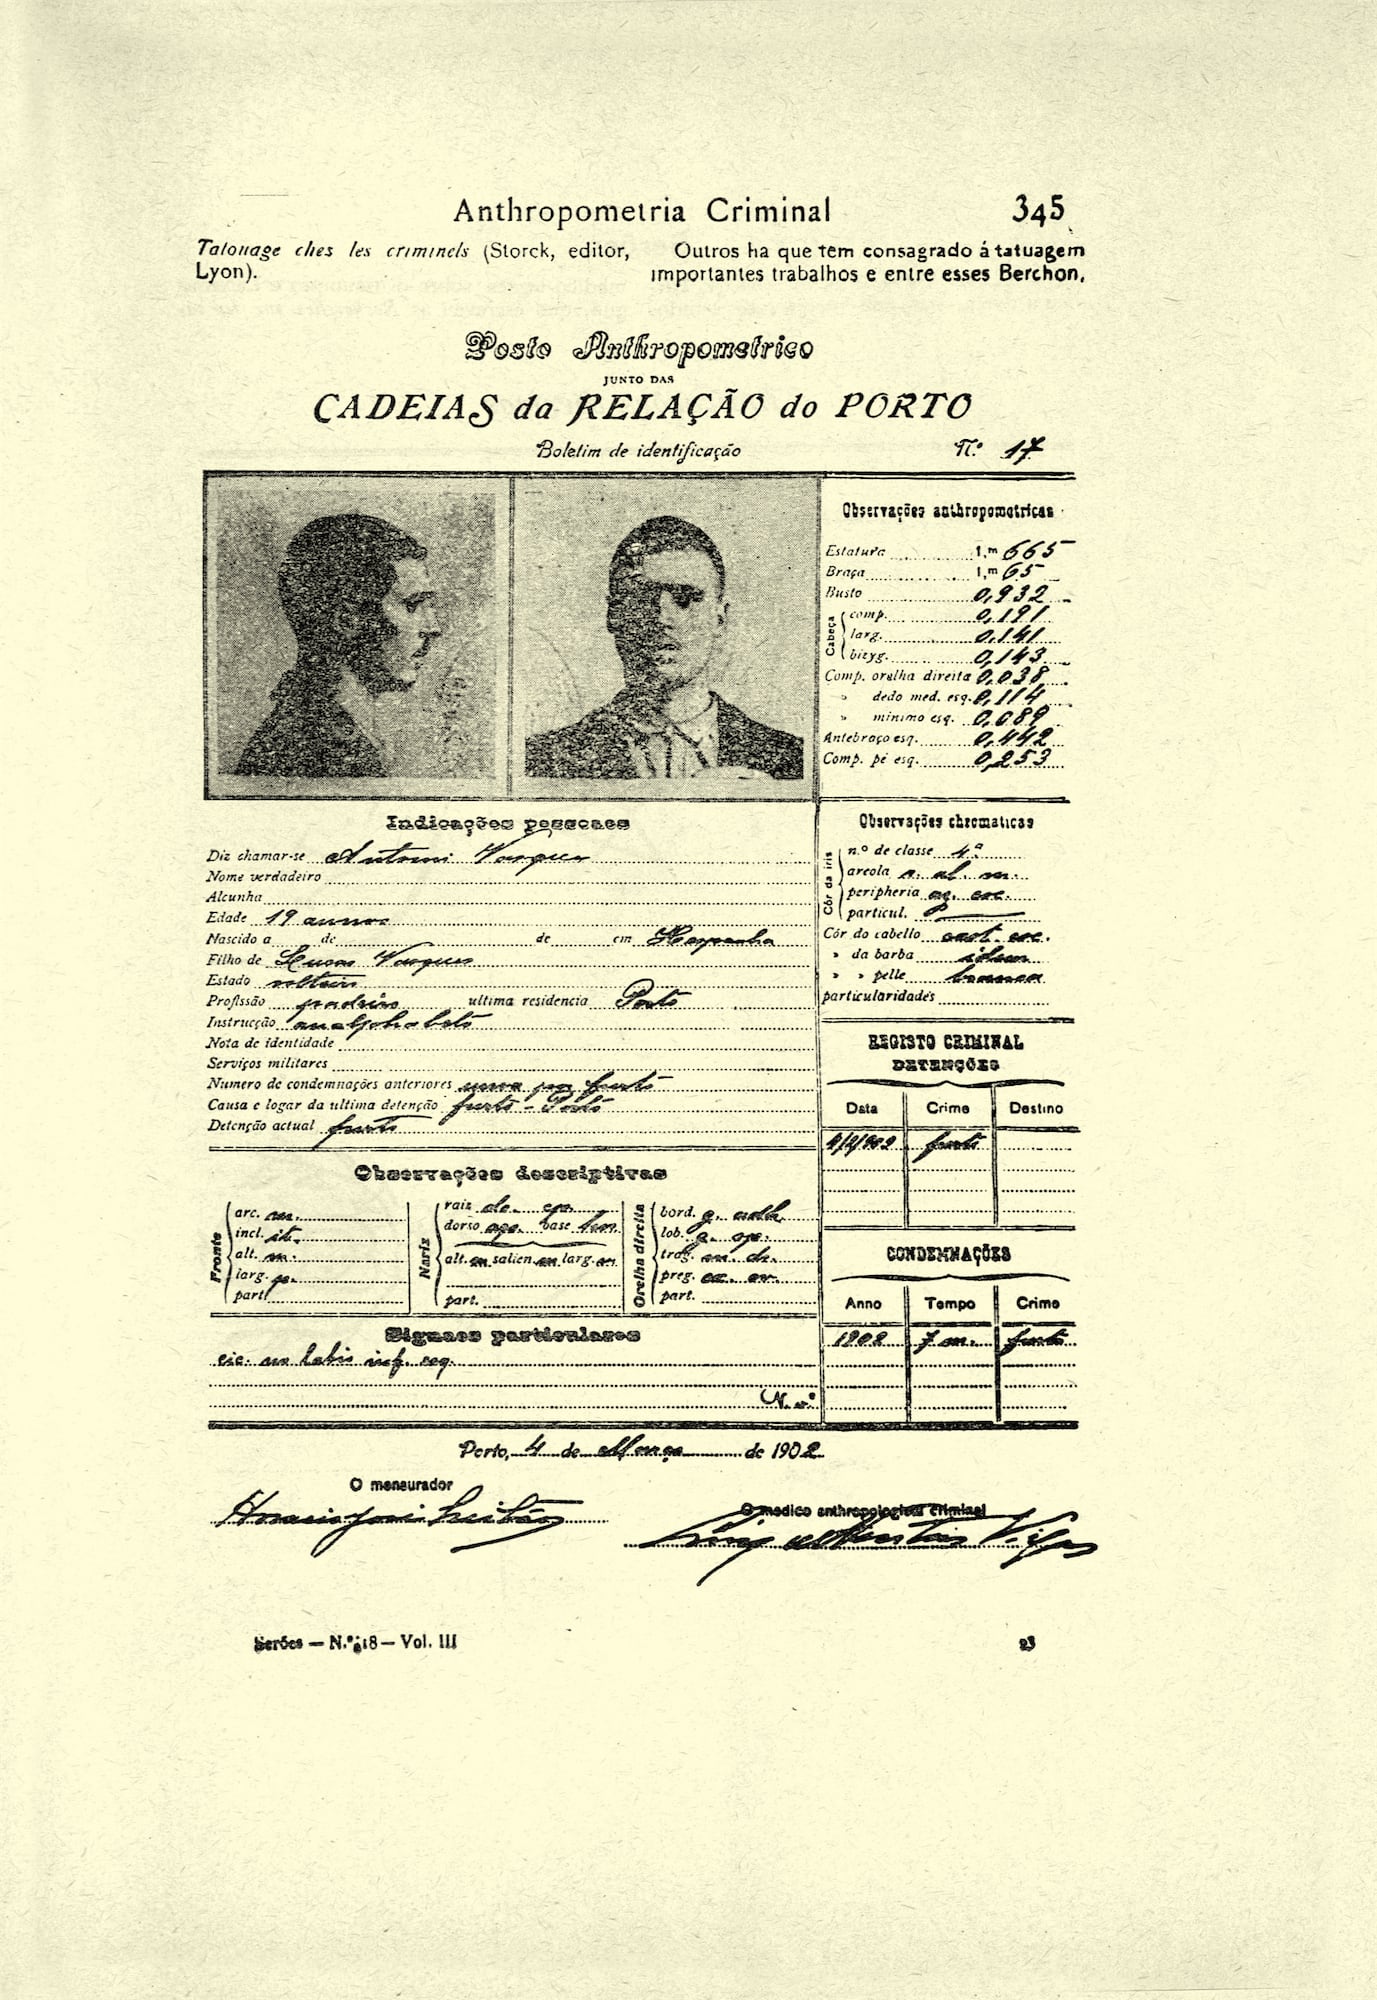 Anthropometria Criminal 345
Tatouage ches les criminels (Storck, editor,
Lyon).
Outros ha que tem consagrado á tatuagem
importantes trabalhos e entre esses Berchon,
Posto Anthropometrico
JUNTO DAS
CADEIAS da RELAÇÃO do PORTO
Boletim de identificação N.º 17
Observações anthropometricas
Estatura 1,m 665
Braça 1,m 65
Busto 0,932
Cabeça
comp. 0,191
larg. 0,141
bizyg. 0,143
Comp. orelha direita 0,038
» dedo med. esq. 0,114
» minimo esq. 0,089
Antebraço esq. 0,442
Comp. pé esq. 0,253
Indicações pessoaes
Diz chamar-se Antonio Vasques
Nome verdadeiro
Alcunha
Edade 19 annos
Nascido a de de em Hespanha
Filho de Lucas Vasques
Estado solteiro
Profissão padeiro ultima residencia Porto
Instrucção analphabeto
Nota de identidade
Serviços militares
Numero de condemnações anteriores uma por furto
Causa e logar da ultima detenção furto - Porto
Detenção actual furto
Observações chromaticas
Côr da iris
n.º de classe 4.ª
areola a. al. m.
peripheria az. esc.
particul. P
Côr do cabello cast. esc.
» da barba idem
» » pelle branca
particularidades
REGISTO CRIMINAL
DETENÇÕES
Data Crime Destino
4/2/902 furto
Observações descriptivas
Fronte
arc. m.
incl. it.
alt. m.
larg. p.
part.
Nariz
raiz
dorso base
alt. m salien. m larg. m
part.
Orelha direita
bord. g.
lob.
trag. m.
preg.
part.
CONDEMNAÇÕES
Anno Tempo Crime
1902 7 m. furto
Signaes particulares
cic. no labio inf. esq.
N.
Porto, 4 de Março de 1902
O mensurador
O medico anthropologista criminal
Horacio José Leitão
Luiz Viegas
Serões — N.º 18 — Vol. III 23